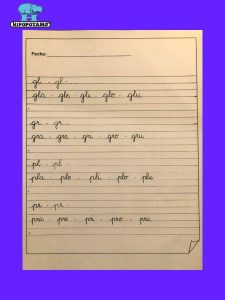 HIPOPOTAMO
Fecha:
gl - gl -
gla - gle - gli - glo - glu
gr - gr -
gra - gre - gri - gro - gru
pl - pl -
pla - ple - pli - plo - plu
pr - pr -
pra - pre - pri - pro - pru